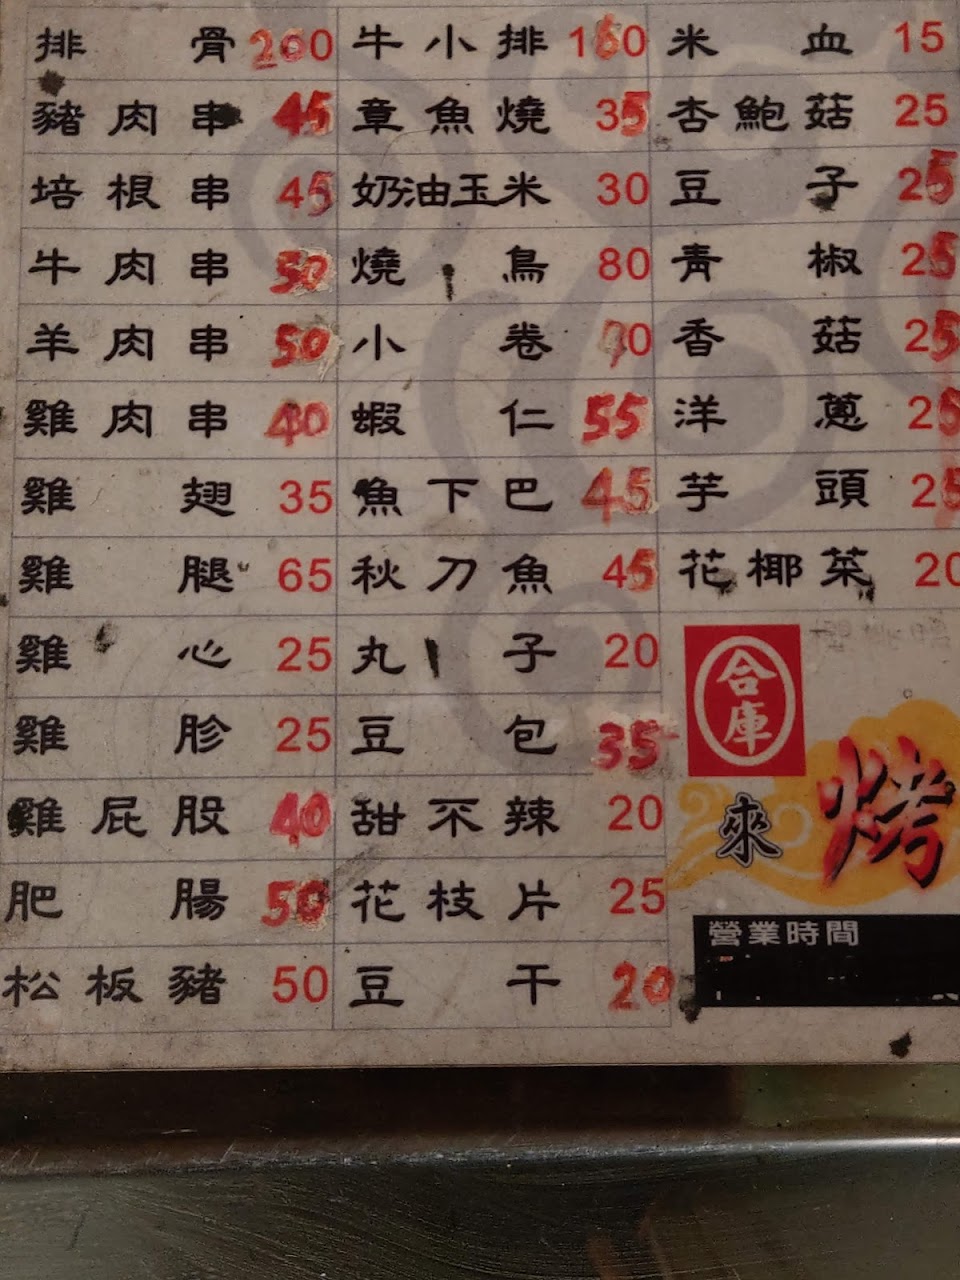 排骨 260
豬肉串 45
培根串 45
牛肉串 50
羊肉串 50
雞肉串 40
雞翅 35
雞腿 65
雞心 25
雞胗 25
雞屁股 40
肥腸 50
松板豬 50
牛小排 160
章魚燒 35
奶油玉米 30
燒鳥 80
小卷
蝦仁 55
魚下巴 45
秋刀魚 45
丸子 20
豆包 35
甜不辣 20
花枝片 25
豆干 20
米血 15
杏鮑菇 25
豆子 25
青椒 25
香菇 25
洋蔥 25
芋頭 25
花椰菜 20
合庫
來烤
營業時間